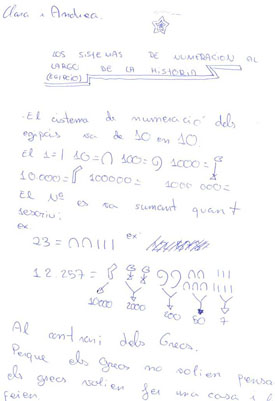 Clara i Andrea.
LOS SISTEMAS DE NUMERACION AL
LARGO DE LA HISTORIA
(EGIPCIO)
El sistema de numeració dels
egipcis va de 10 en 10.
El 1=| 10=∩ 100= 1000=
10.000= 100000= 1000000=
El Nº es va sumant quant
ex.
23 = ∩∩||| ex:
12.257 = ∩∩∩∩∩ |||||||
10000 2000 200 50 7
Al contrari dels Grecs.
Perque els grecs no volien
els grecs volien fer una casa i
feien